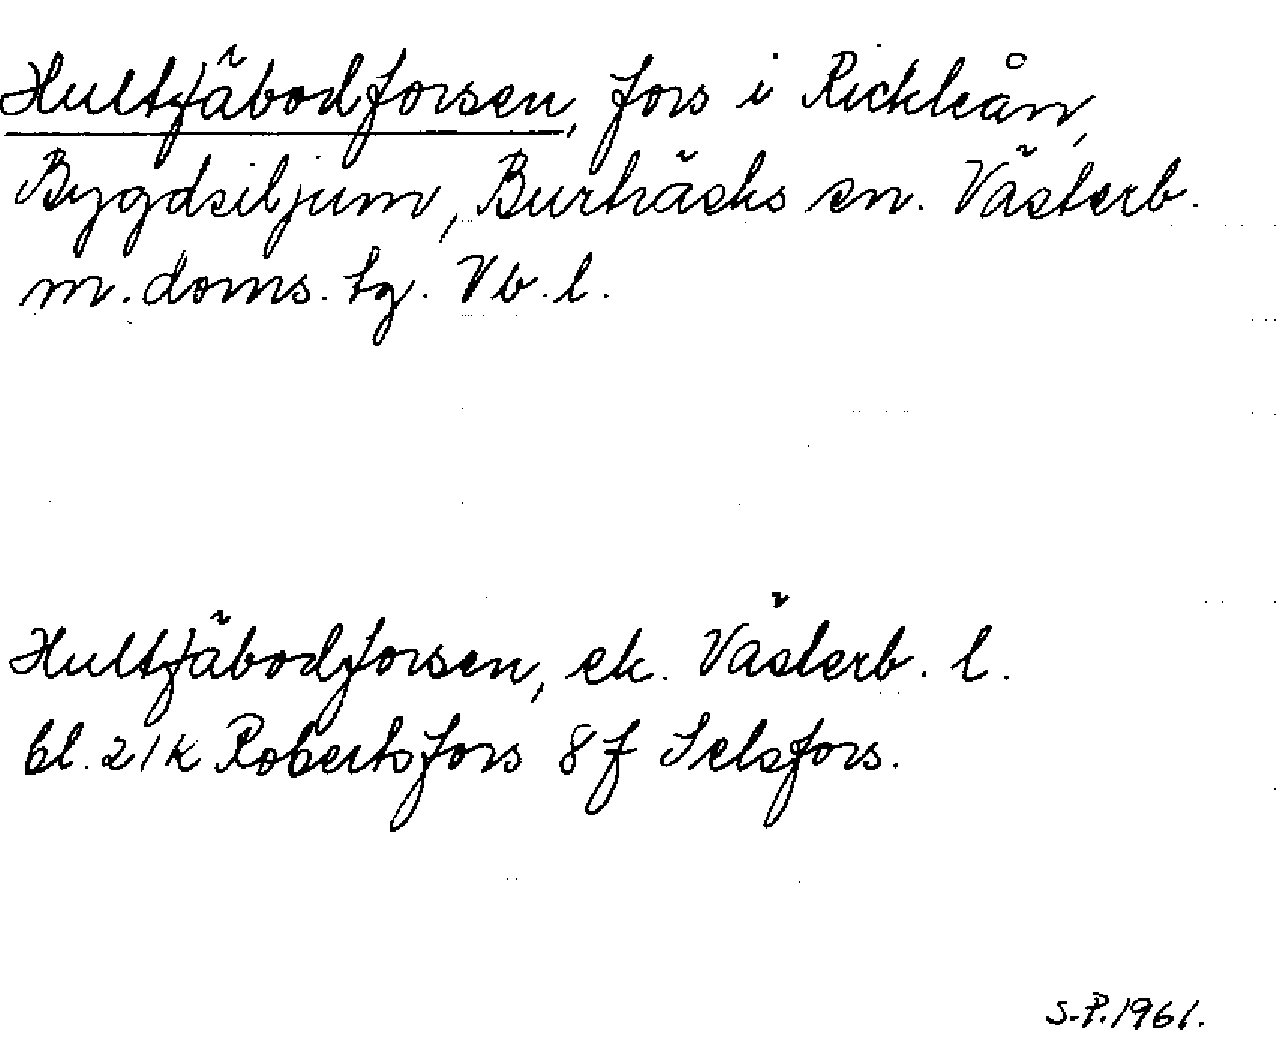 Hultfäbodforsen, fors i Rickleån,
Bygdsiljum, Burträsks sn. Västerb.
m. doms. tg. Vb. l.
Hultfäbodforsen, ek. Västerb. l.
bl. 21K Robertsfors 8f Selsfors.
S.P. 1961.